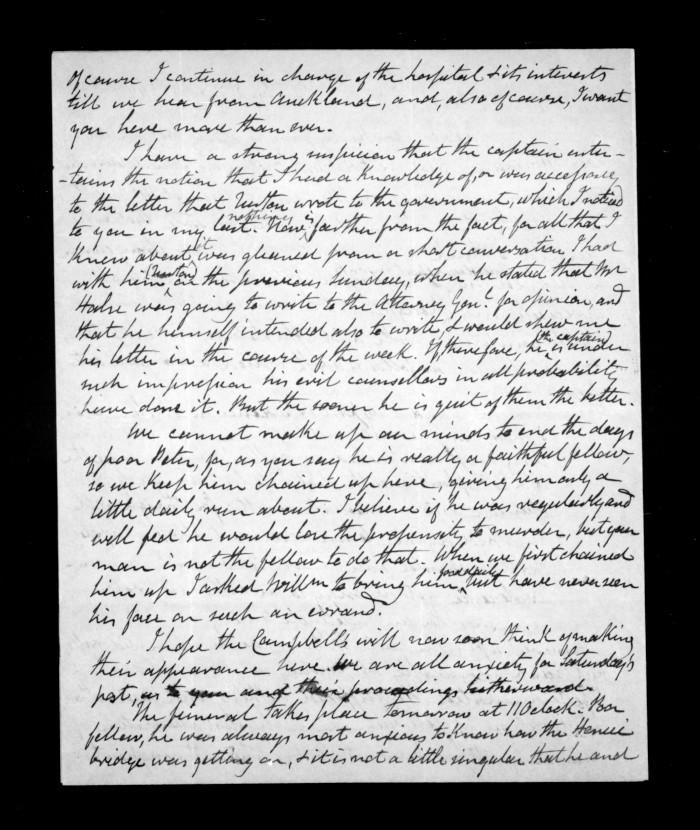 Of course I continue in charge of the hospital & its interests
till we hear from Auckland, and, also of course, I want
you here more than ever.
I have a strong suspicion that the captain enter-
-tains the notion that I had a knowledge of, or was accessory
to the letter that Newton wrote to the government, which I noticed
to you in my last. Now nothing is farther from the fact, for all that I
knew about it was gleaned from a short conversation I had
with him (Newton) on the previous Sunday, when he stated that Mr
Halse was going to write to the Attorney Genl. for opinion, and
that he himself intended also to write, & would shew me
his letter in the course of the week. If therefore, he (the captain) is under
such impression his evil counsellors in all probability
have done it. But the sooner he is quit of them the better.
We cannot make up our minds to end the days
of poor Peter, for, as you say he is really a faithful fellow,
so we keep him chained up here, giving him only a
little daily run about. I believe if he was regularly and
well fed he would lose the propensity to murder, but your
man is not the fellow to do that. When we first chained
him up I asked Willm to bring him food daily but have never seen
his face on such an errand.
I hope the Campbells will now soon think of making
their appearance here. We are all anxiety for Saturday's
post, as to your and their proceedings hitherward.
The funeral takes place tomorrow at 11 Oclock. Poor
fellow, he was always most anxious to know how the Henui
bridge was getting on, & it is not a little singular that he and